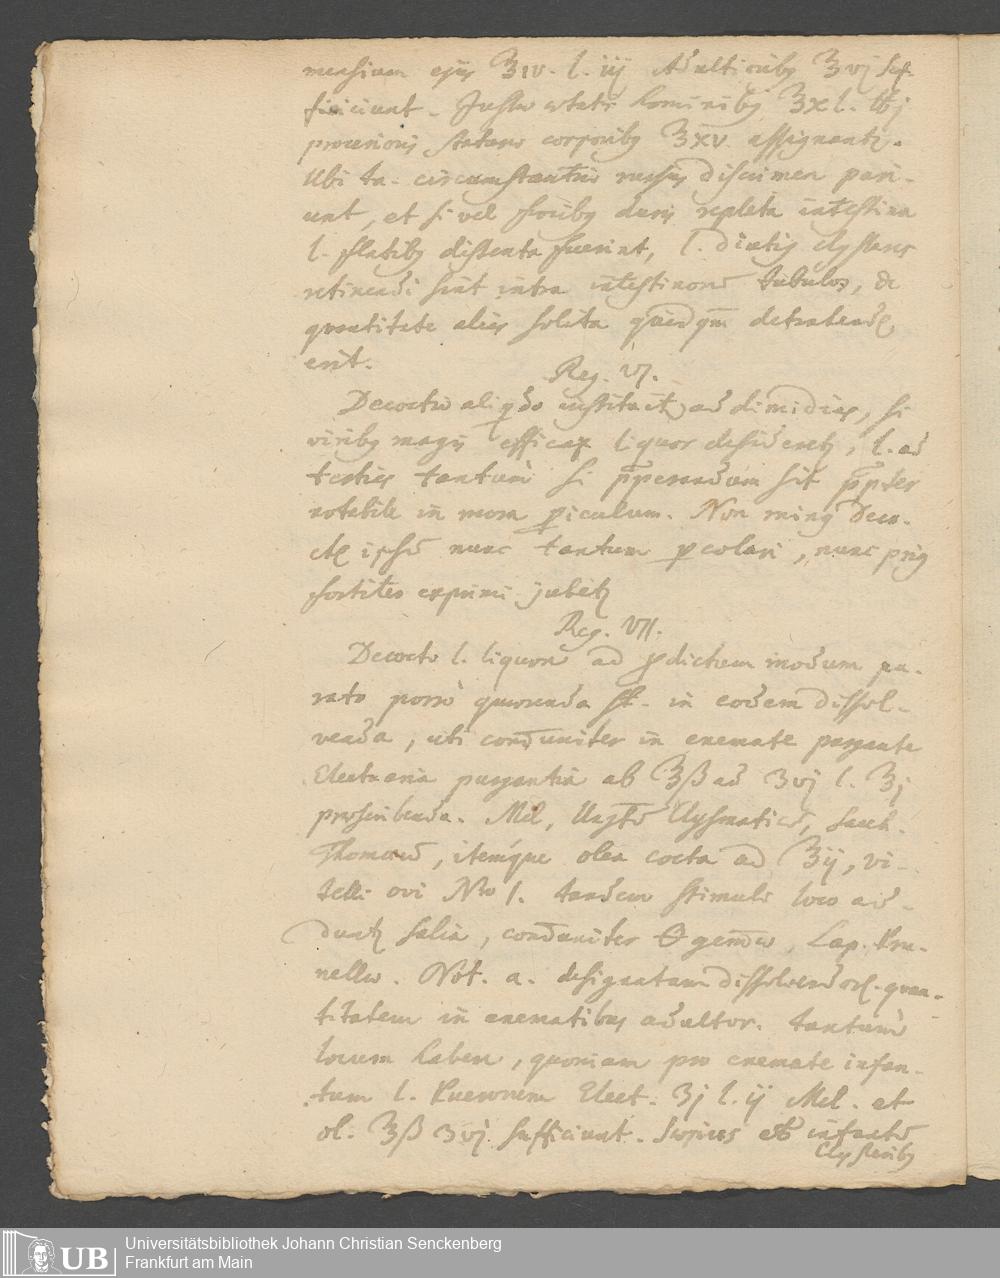 mensium ejus ℥iv. l. iij Adultioribꝫ ℥vj suf-
ficiunt. Justae aetatis hominibꝫ ℥xl. ℔j
procerioris staturae corporibꝫ ℥xv assignantꝫ.
Ubi tn. circumstantiis rursus discrimen pari-
unt, et si vel foecibꝫ duris repleta intestina
l. flatibꝫ distenta fuerint, l. diutiꝫ clysteres
retinendi sint intra intestinorū tubulos, de
quantitate aliàs solita quidqm̄ detrahendū
erit.
Reg. VI.
Decoctio aliqdo instituit ad dimidias, si
viribꝫ magis efficax liquor desideretꝫ, l. ad
tertias tantum si pperandum sit ppter
notabile in mora piculum. Non minꝫ Deco-
ctū ipsū nunc tantum pcolari, nunc priꝫ
fortiter exprimi jubetꝫ
Reg. VII.
Decocto l. liquore ad pdictum modum pa-
rato porrò quaerenda st. in eodem dissol-
venda, ubi com̄uniter in enemate purgante
Electuaria purgantia ab ℥ß ad ʒvj l. ℥j
praescribenda. Mel, Ungtū Clysmaticū, Sacch.
Thomaeū, itemque olea cocta ad ℥ij, vi-
telli ovi Nro 1. tandem stimuli loco ad-
duntꝫ salia, com̄uniter 🜔 gem̄ae, Lap. Pru-
nellae. Not. a. designatam dissolvendor. quan-
titatem in enematibus adultor. tantum
locum habere, quoniam pro enemate infan-
tum l. Puerorum Elect. ʒj l. ij Mel. et
ol. ℥ß ʒvj sufficiunt. Saepius infectū
Clysteribꝫ
UB
Universitätsbibliothek Johann Christian Senckenberg
Frankfurt am Main